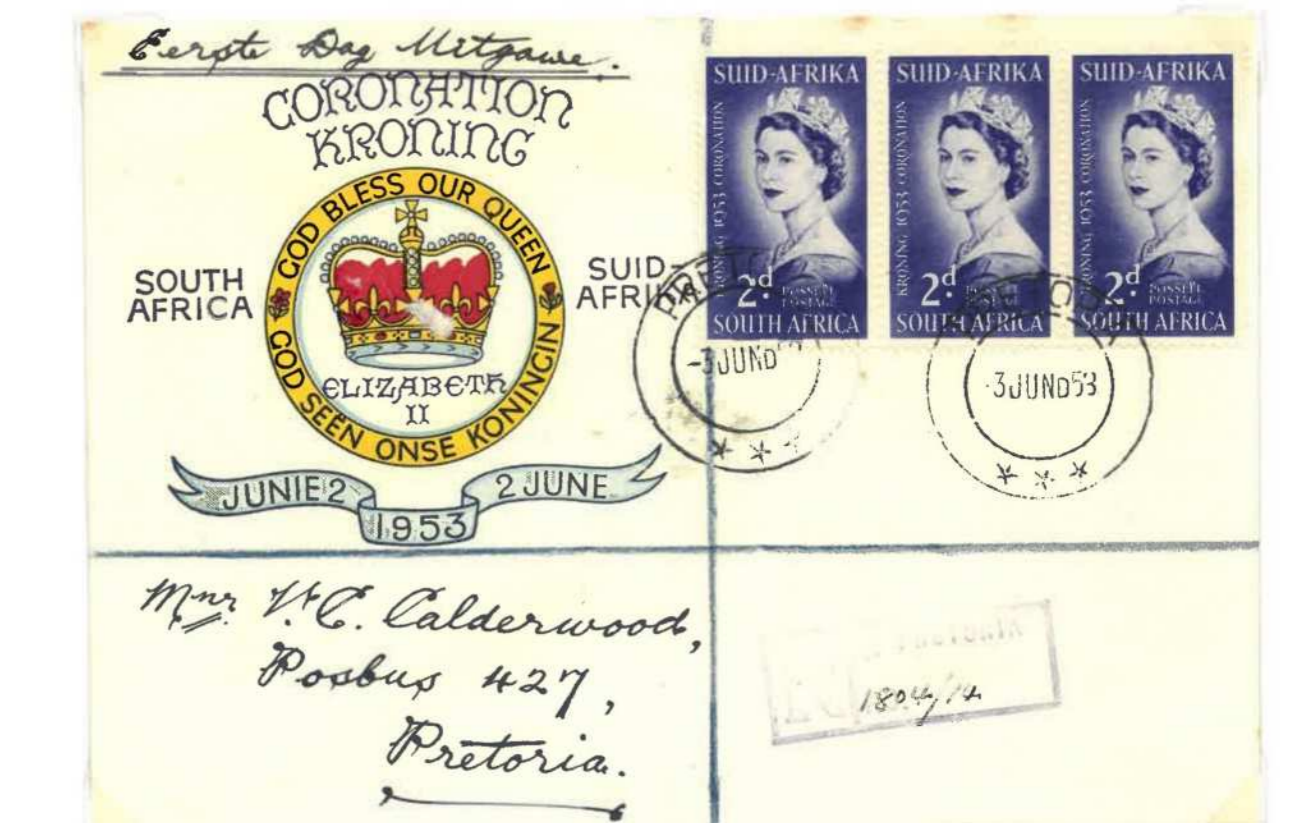 Eerste Dag Uitgawe.
CORONATION
KRONING
GOD BLESS OUR QUEEN
GOD SEËN ONSE KONINGIN
ELIZABETH
II
SOUTH
AFRICA
SUID-
AFRIKA
JUNIE 2
1953
2 JUNE
SUID-AFRIKA
KRONING 1953 CORONATION
2d
POSSEËL
POSTAGE
SOUTH AFRICA
SUID-AFRIKA
KRONING 1953 CORONATION
2d
POSSEËL
POSTAGE
SOUTH AFRICA
SUID-AFRIKA
KRONING 1953 CORONATION
2d
POSSEËL
POSTAGE
SOUTH AFRICA
PRETORIA
-3JUND
PRETORIA
-3JUND53
Mnr V.C. Calderwood,
Posbus 427,
Pretoria.
1804/14